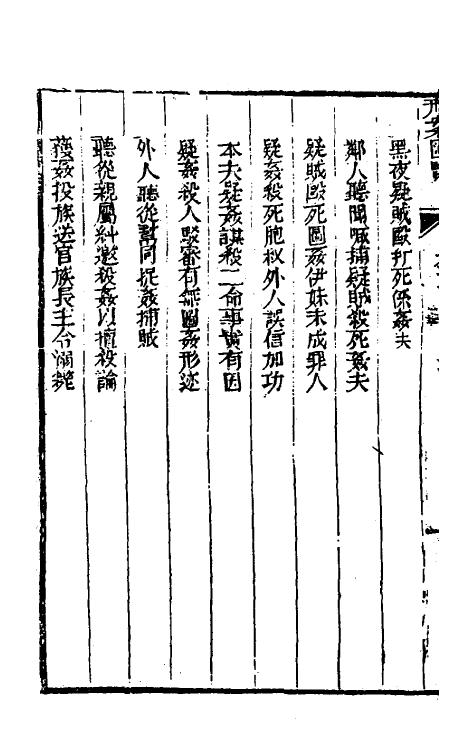 刑案匯覽
黑夜疑賊毆打死係姦夫
鄰人聽聞喊捕疑賊殺死姦夫
疑賊毆死圖姦伊妹未成罪人
疑姦殺死胞叔外人誤信加功
本夫疑姦謀殺二命事實有因
疑姦殺人駁審有無圖姦形迹
外人聽從幫同捉姦捕賊
聽從親屬糾邀殺姦以擅殺論
獲姦投族送官族長主令溺斃